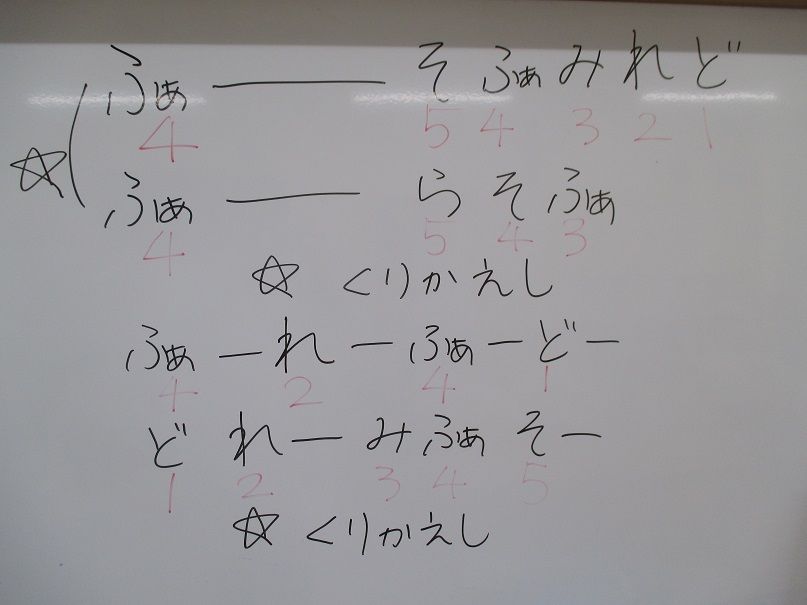 ふぁ ――― そ ふぁ み れ ど
4 5 4 3 2 1
☆( ふぁ ――― ら そ ふぁ
4 5 4 3
☆ くりかえし
ふぁ ー れ ー ふぁ ー ど ー
4 2 4 1
ど れ ー み ふぁ そ ー
1 2 3 4 5
☆ くりかえし